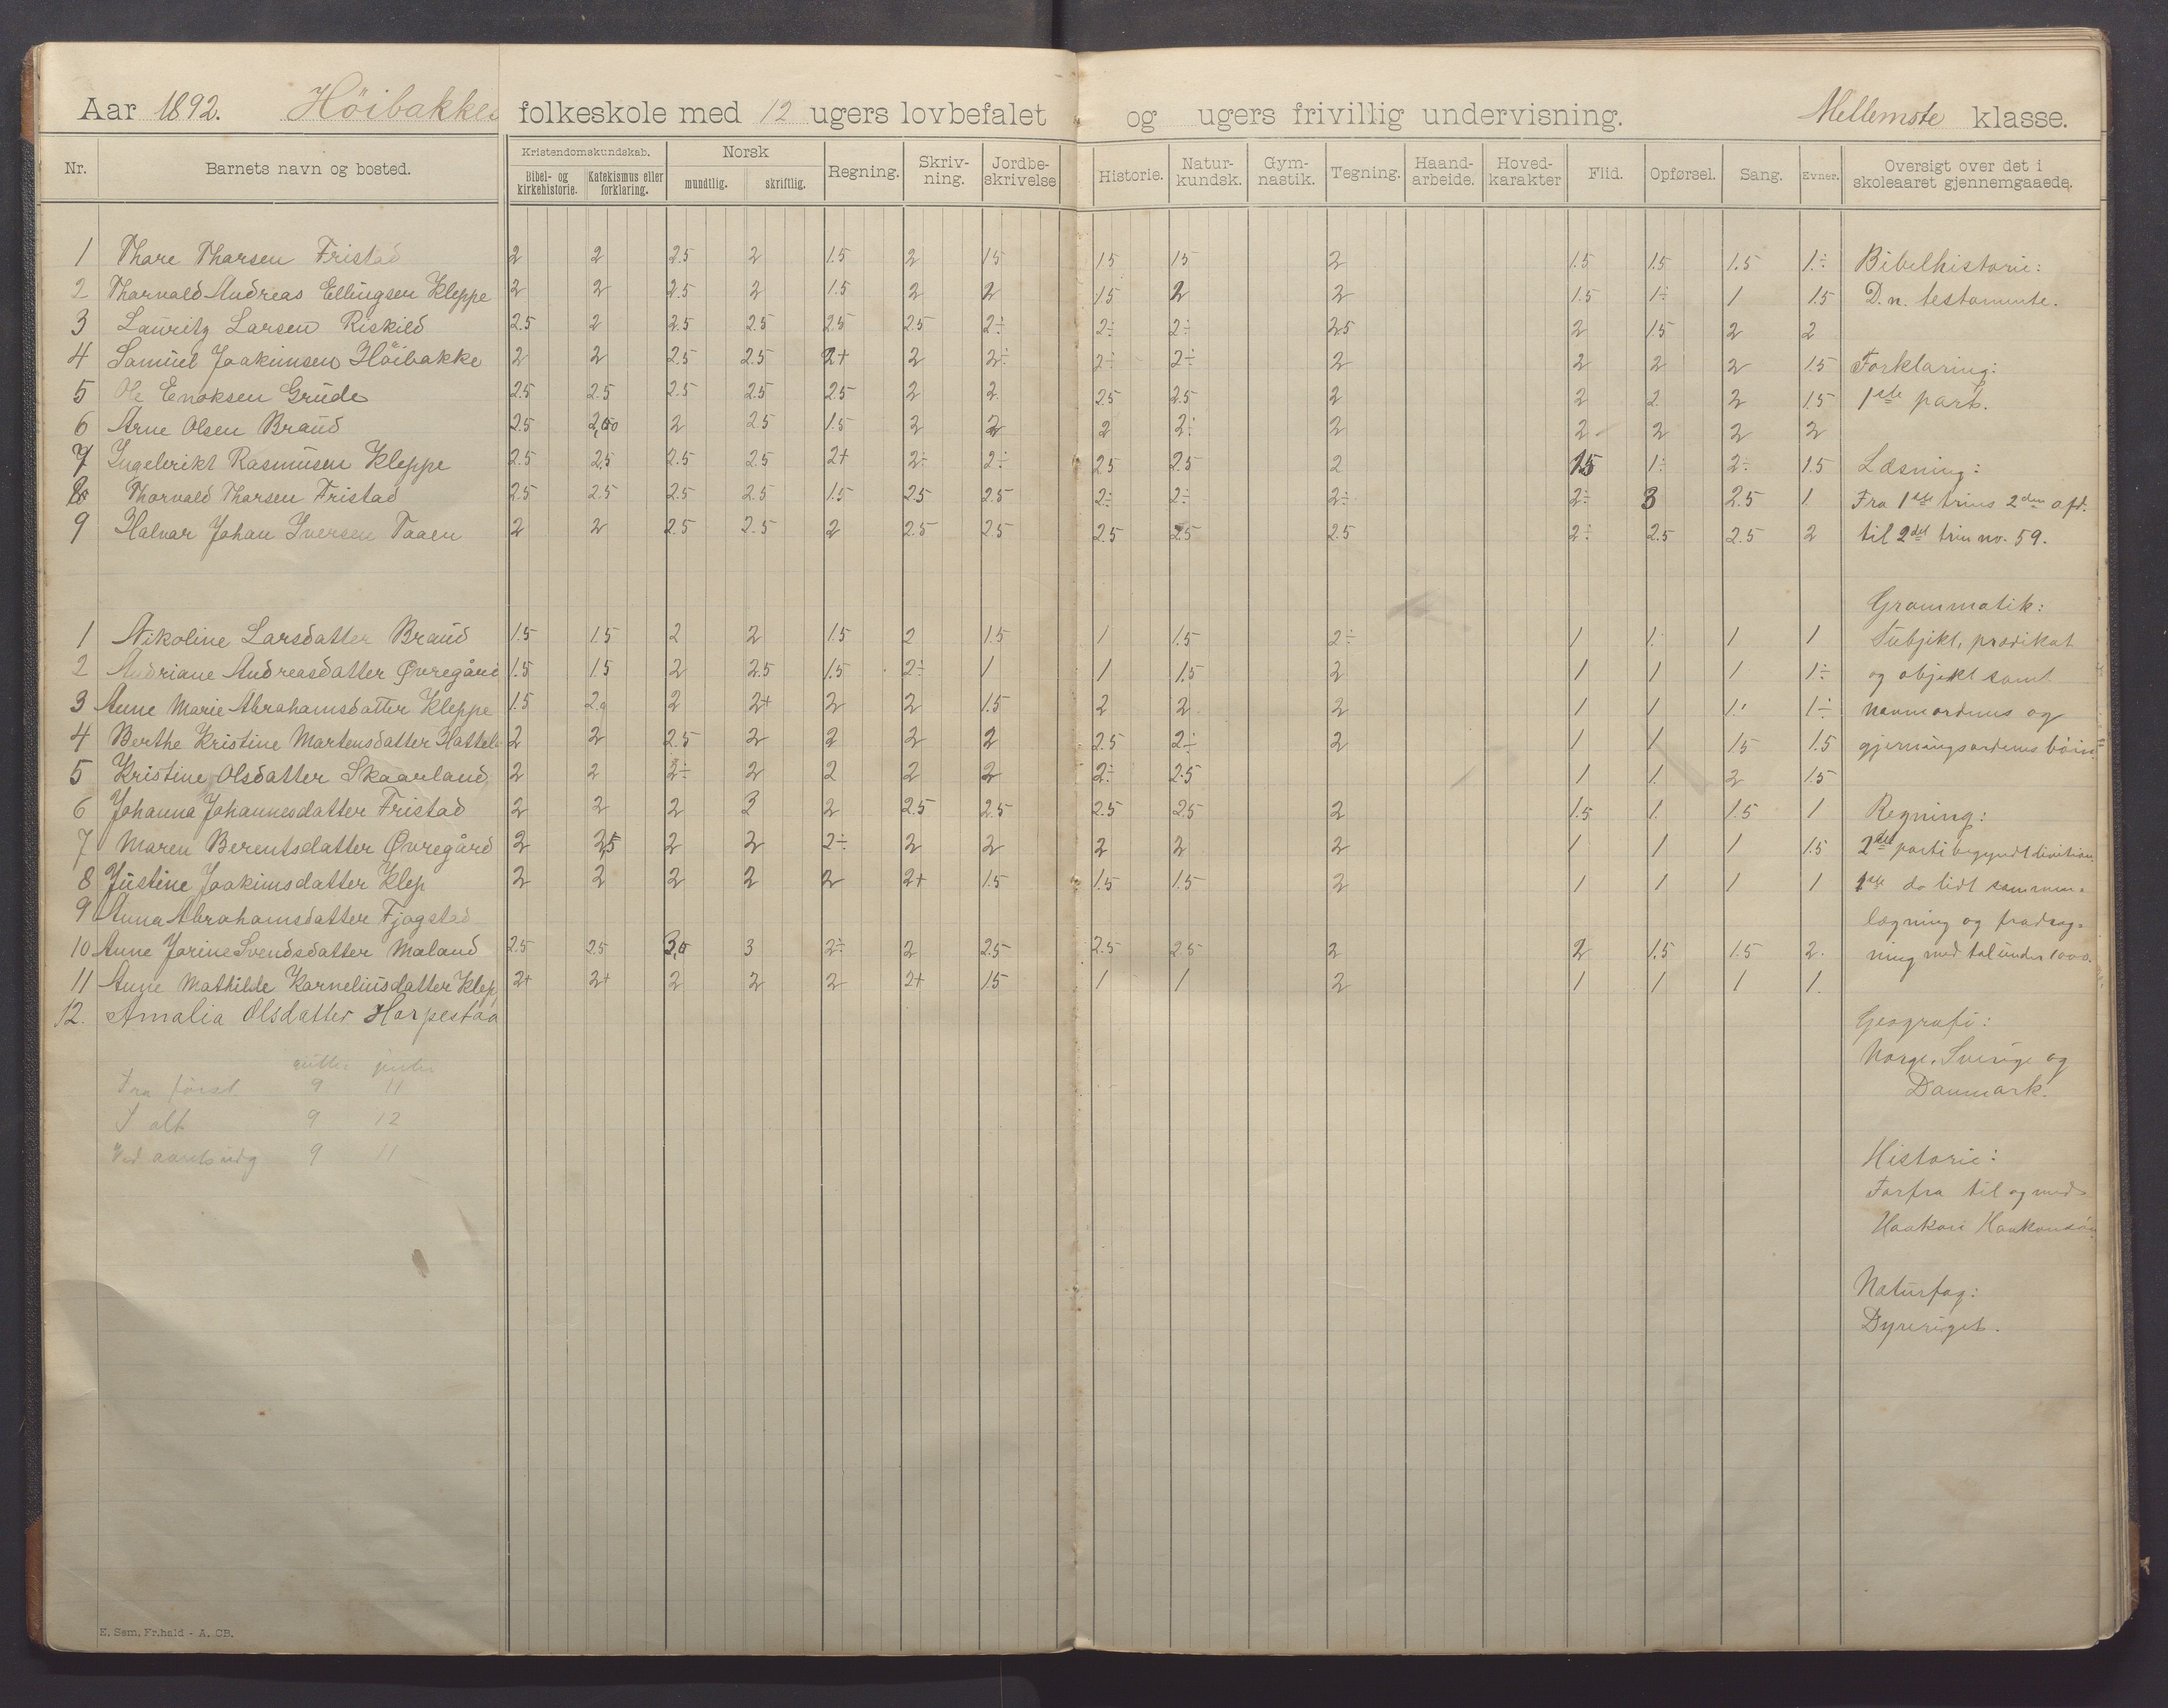 Aar 1892. Höibakke folkeskole med 12 ugers lovbefalet og ugers frivillig undervisning. Mellemste klasse.
Nr. Barnets navn og bosted. Kristendomskundskab. Bibel- og kirkehistorie. Katekismus eller forklaring. Norsk mundtlig. skriftlig. Regning. Skriv-ning. Jordbe-skrivelse Historie. Natur-kundsk. Gym-nastik. Tegning. Haand-arbeide. Hoved-karakter Flid. Opførsel. Sang. Evner. Oversigt over det i skoleaaret gjennemgaaede.
1 Thore Thorsen Fristad 2 2 2.5 2 1.5 2 1.5 1.5 1.5 2 1.5 1.5 1.5 1÷ Bibelhistorie:
2 Thorvald Andreas Ellingsen Kleppe 2 2 2.5 2 1.5 2 2 1.5 2 2 1.5 1÷ 1 1.5 D. n. testamente.
3 Lauritz Larsen Riskild 2.5 2 2.5 2.5 2.5 2.5 2÷ 2÷ 2÷ 2.5 2 1.5 2 2
4 Samuel Joakimsen Höibakke 2 2 2.5 2.5 2+ 2 2÷ 2÷ 2÷ 2 2 2 2 1.5 Forklaring:
5 Ole Enoksen Grude 2.5 2.5 2.5 2.5 2.5 2 2. 2.5 2.5 2 2 2. 2 1.5 1ste part.
6 Arne Olsen Braud 2.5 2 2.5 1.5 2 2 2 2÷ 2 2 2 2 2
7 Rasmusen Kleppe 2.5 2.5 2.5 2.5 2+ 2÷ 2÷ 2.5 2.5 2 1.5 1÷ 2÷ 1.5 Læsning:
8 Thorvald Thorsen Fristad 2.5 2.5 2.5 2.5 1.5 2.5 2.5 2÷ 2÷ 2÷ 2÷ 3 2.5 1. Fra 1ste trins 2den afd.
9 Halvar Johan Iversen Taaen 2 2 2.5 2.5 2 2.5 2.5 2.5 2.5 2.5 2÷ 2.5 2.5 2 til 2det trin no. 59.
Grammatik:
1 Nikoline Larsdatter Braud 1.5 1.5 2 2 1.5 2 1.5 1 1.5 2÷ 1 1. 1 1 Subjekt, prædikat
2 Andriane Andreasdatter Øvregård 1.5 1.5 2 2.5 1.5 2÷ 1 1 1.5 2 1 1 1 1÷ og objekt samt
3 Anne Marie Abrahamsdatter Kleppe 1.5 2 2 2+ 2 2 1.5 2 2 2 1 1 1. 1÷ navnordenes og
4 Berthe Kristine Martensdatter 2 2 2.5 2 2 2 2 2.5 2÷ 2 1 1 1.5 1.5 gjerningsordenes böin.
5 Kristine Olsdatter Skaarland 2 2 2÷ 2 2 2 2 2÷ 2.5 1 1. 2 1.5
6 Johanna Johannesdatter Fristad 2 2 2 3 2 2.5 2.5 2.5 2.5 2 1.5 1. 1.5 1 Regning:
7 Maren Berentsdatter Øvregård 2 2,5 2 2 2÷ 2 2 2 2 2 1 1 1 1.5 2det parti begyndt division
8 Justine Joakimsdatter Klep 2 2 2 2 2 2+ 1.5 1.5 1.5 2 1 1 1 1 1ste do lidt sammen=
9 Anna Abrahamsdatter Fjogstad lægning og fradrag=
10 Anne Jorine Svendsdatter Maland 2.5 2.5 3,0 3 2÷ 2 2.5 2.5 2.5 2 2 1.5 1.5 2. ning med tal under 1000.
11 Anne Mathilde Karneliusdatter Klep 2+ 2+ 2 2 2 2+ 1.5 1 1 2 1 1 1 1.
12. Amalia Olsdatter Harpestad Geografi:
gutter jenter Norge, Sverige og
Fra först 9 11 Danmark.
I alt 9 12
Ved aarets udg 9 11 Historie:
Forfra til og med
Haakon Haakonsön.
Naturfag:
Dyreriget.
E. Sem, Fr.hald - A. CB.